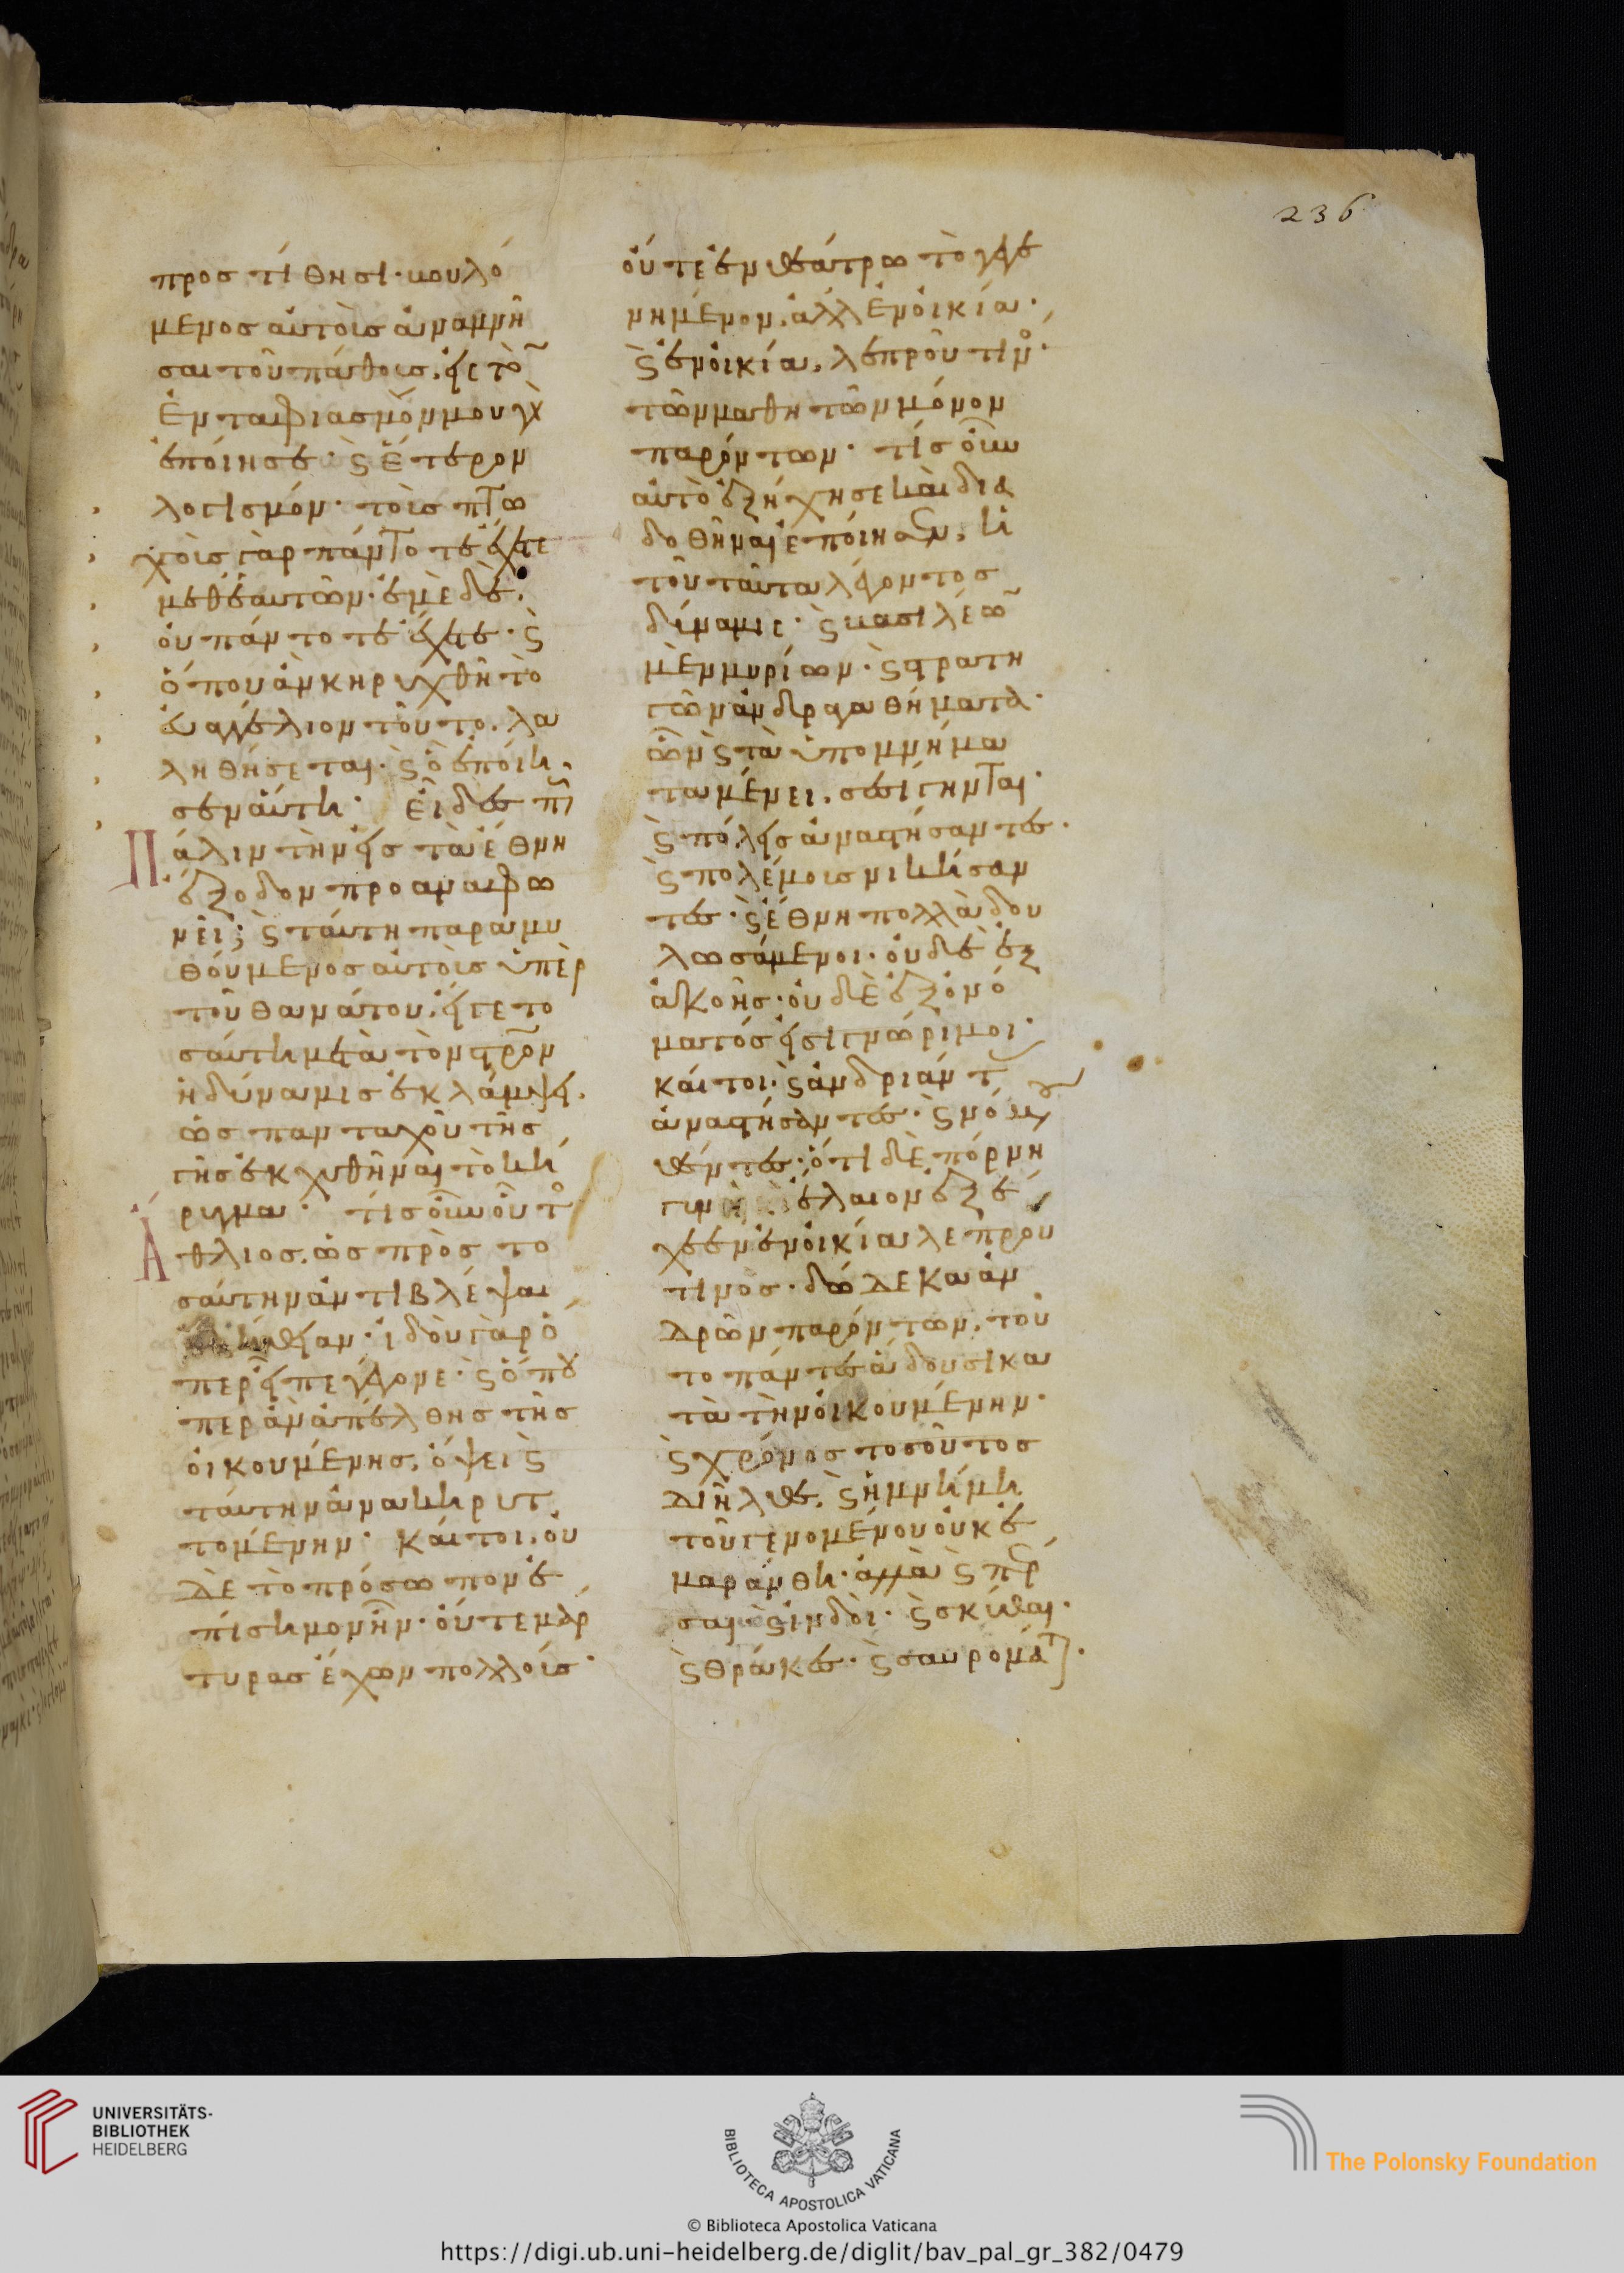 236
προστίθησι· βουλό
μενος αὐτοὺς ἀναμνῆ
σαι τοῦ πάθους, εἰς τὸ
ἐνταφιασμόν μου γὰρ
ἐποίησε· καὶ ἕτερον
λογισμόν· τοὺς πτω
χοὺς γὰρ πάντοτε ἔχετε
μεθ' ἑαυτῶν· ἐμὲ δὲ,
οὐ πάντοτε ἔχετε· καὶ
ὅπου ἂν κηρυχθῆ τὸ
εὐαγγέλιον τοῦτο, λα
ληθήσεται· καὶ ὃ ἐποίη
σεν αὕτη· εἶδες πῶς
πάλιν τὴν εἰς τὰ ἔθνη
ἔξοδον προαναφω
νεῖ; καὶ ταύτη παραμυ
θούμενος αὐτοὺς ὑπὲρ
τοῦ θανάτου, εἴγε το
σαύτη μετὰ τὸν σταυρὸν
ἡ δύναμις ἐκλάμψει,
ὡς πανταχοῦ τῆς
γῆς ἐκχυθῆναι τὸ κή
ρυγμα· τίς οὖν οὕτως
ἄθλιος, ὡς πρὸς το
σαύτην ἀντιβλέψαι
ἀλήθειαν· ἰδοὺ γὰρ ὅ
περ εἶπε γέγονε· καὶ ὅπου
περ ἂν ἀπέλθης τῆς
οἰκουμένης, ὄψει καὶ
ταύτην ἀνακηρυτ
τομένην· καίτοι, οὐ
δὲ τὸ πρόσωπον ἐ
πίσημον ἦν· οὔτε μάρ
τυρας ἔχων πολλούς·
οὔτε ἐν θεάτρω τὸ γεγε
νημένον, ἀλλ' ἐν οἰκία·
καὶ ἐν οἰκία, λεπροῦ τινος·
τῶν μαθητῶν μόνον
παρόντων· τίς οὖν
αὐτὸ ἐξήχησε καὶ δια
δοθῆναι ἐποίησεν, ἡ
τοῦ ταῦτα λέγοντος
δύναμις· καὶ βασιλέων
μὲν μυρίων· καὶ στρατη
γῶν ἀνδραγαθήματα·
ὧν καὶ τὰ ὑπομνήμα
τα μένει, σεσίγηνται·
καὶ πόλεις ἀναστήσαντες·
καὶ πολέμους νικήσαν
τες· καὶ ἔθνη πολλὰ δου
λωσάμενοι· οὐδὲ ἐξ
ἀκοῆς· οὐδὲ ἐξ ὀνό
ματός εἰσι γνώριμοι·
καίτοι· καὶ ἀνδριάντας
ἀναστήσαντες· καὶ νόμους
θέντες· ὅτι δὲ πόρνη
γυνὴ ἔλαιον ἐξέ
χεεν ἐν οἰκία λεπροῦ
τινὸς· δώδεκα ἀν
δρῶν παρόντων, τοῦ
το πάντες ἄδουσι κα
τὰ τὴν οἰκουμένην·
καὶ χρόνος τοσοῦτος
διῆλθε, καὶ ἡ μνήμη
τοῦ γενομένου οὐκ ἐ
μαράνθη· ἀλλὰ καὶ πέρ
σαι· καὶ ἰνδοὶ· καὶ σκύθαι·
καὶ θράκες· καὶ σαυρομάται·
UNIVERSITÄTS-
BIBLIOTHEK
HEIDELBERG
BIBLIOTECA APOSTOLICA VATICANA
© Biblioteca Apostolica Vaticana
The Polonsky Foundation
https://digi.ub.uni-heidelberg.de/diglit/bav_pal_gr_382/0479